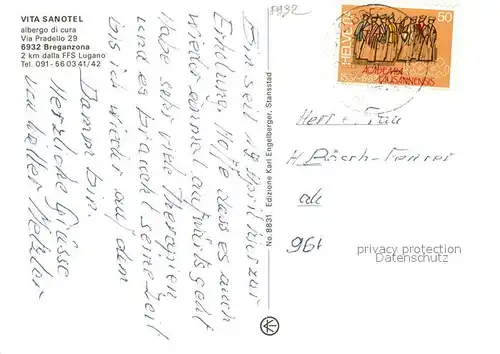 VITA SANOTEL
albergo di cura
Via Pradello 29
6932 Breganzona
2 km dalla FFS Lugano
Tel. 091 - 66 03 41/42
HELVETIA
50
ACADEMIA
LAUSANNENSIS
Bin seit 19. April hier zur
Erholung. Hoffe dass es auch
wieder einmal aufwärts geht
Habe sehr viele Therapien
und es braucht seine Zeit
bis ich wieder auf dem
Damm bin.
Herzliche Grüsse
No. 8831 Edizione Karl Engelberger, Stansstad
Herr + Frau
privacy protection
Datenschutz